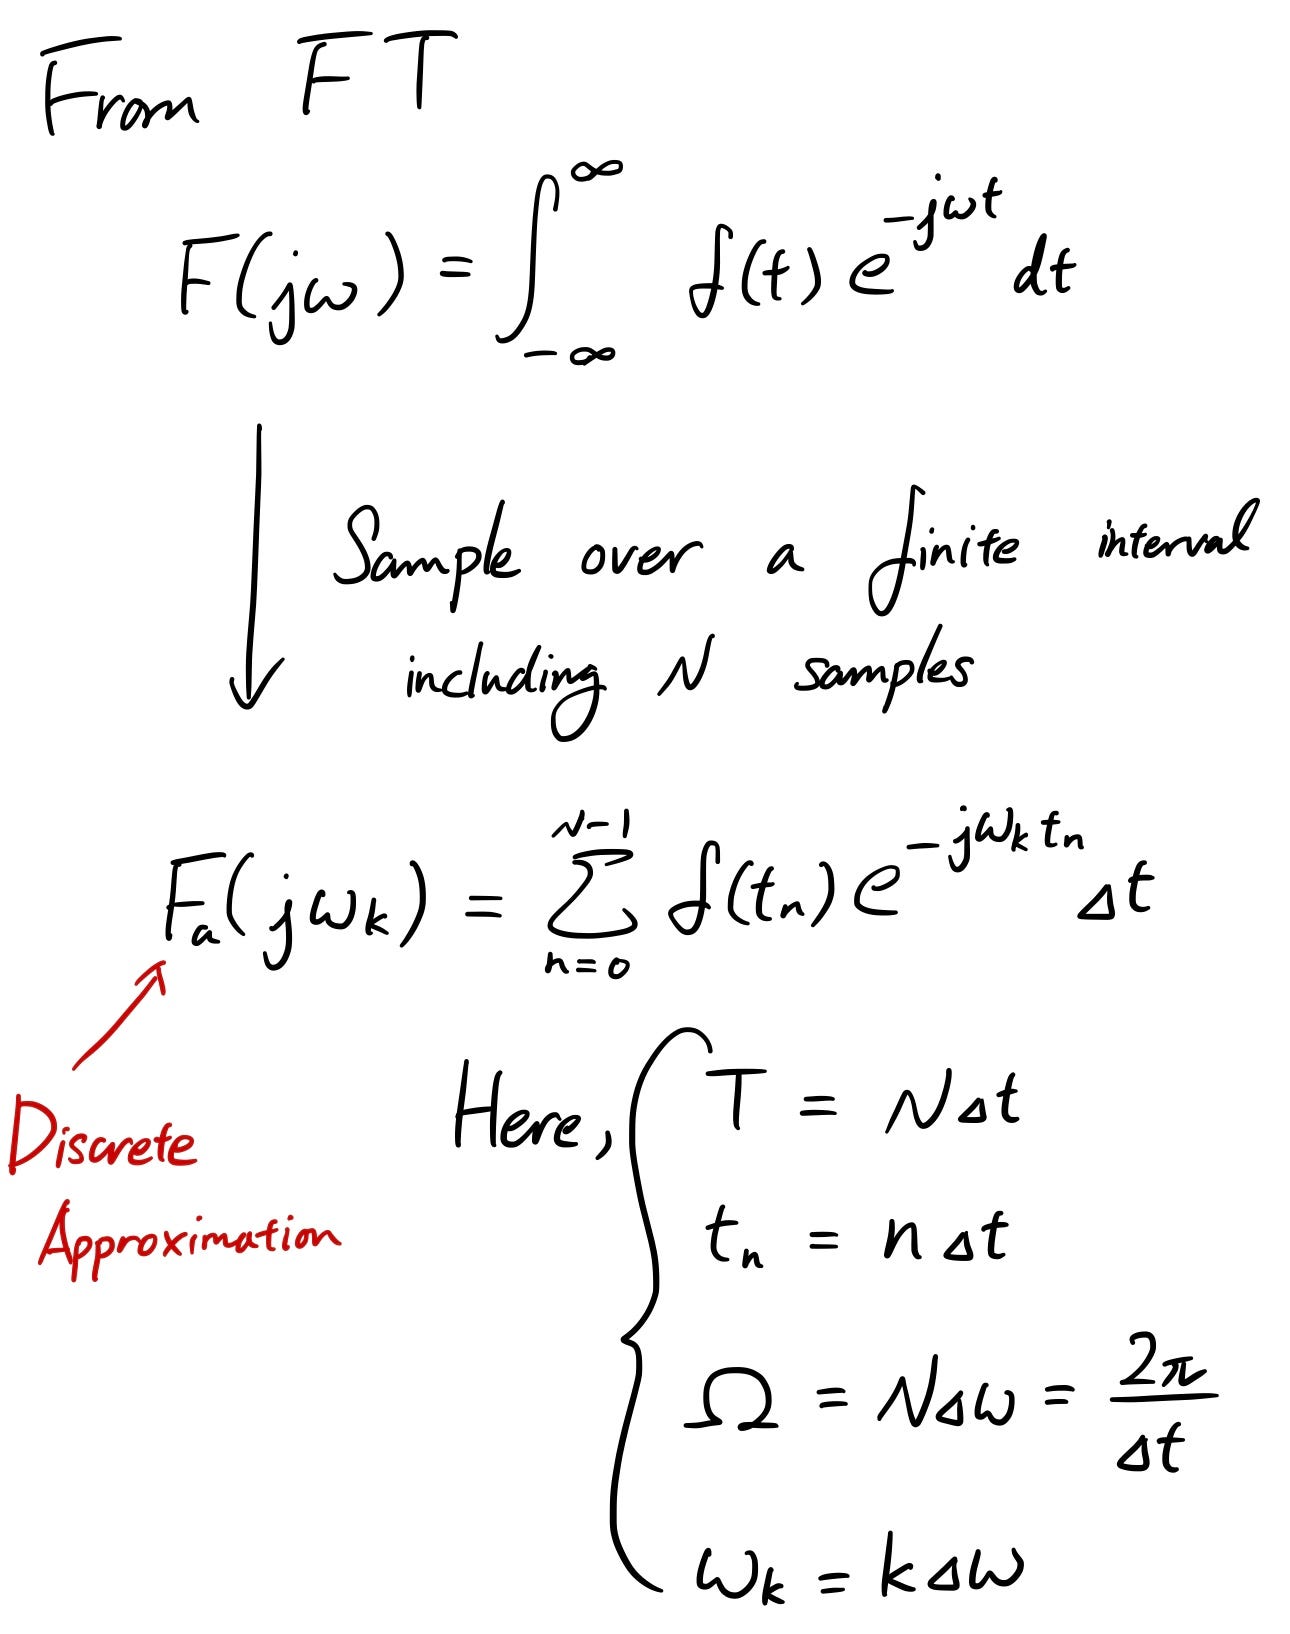 From FT
F(jω) = ∫_{-∞}^{∞} f(t) e^{-jωt} dt
Sample over a finite interval
including N samples
F_a(jω_k) = ∑_{n=0}^{N-1} f(t_n) e^{-jω_k t_n} Δt
Discrete
Approximation
Here, { T = NΔt
t_n = nΔt
Ω = NΔω = \frac{2π}{Δt}
ω_k = kΔω